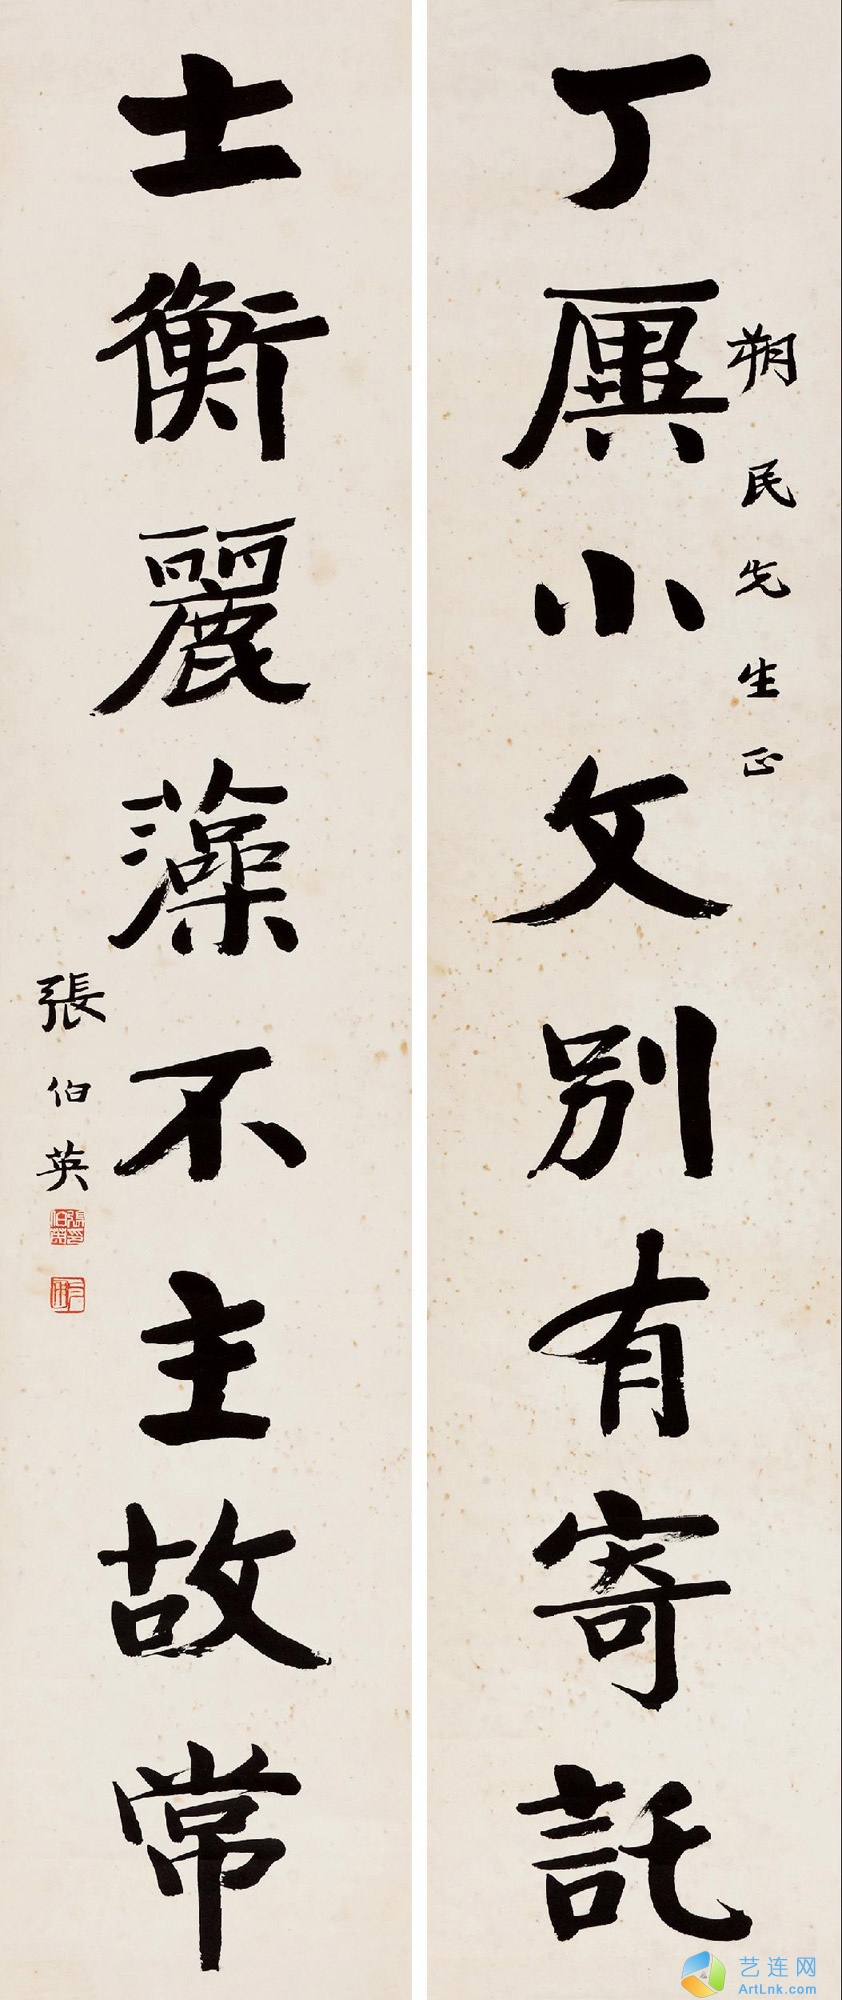 朔民先生正
丁廙小文别有寄託
士衡麗藻不主故常
張伯英
張印伯英
艺连网
ArtLnk.com